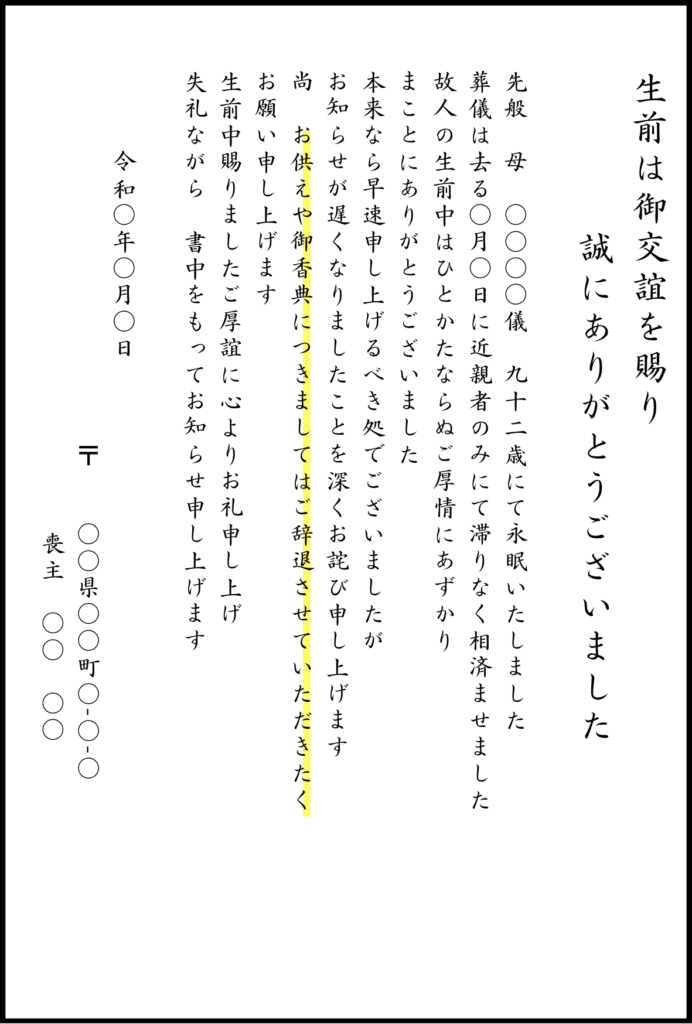 生前は御交誼を賜り
誠にありがとうございました
先般　母　〇〇〇〇儀　九十二歳にて永眠いたしました
葬儀は去る〇月〇日に近親者のみにて滞りなく相済ませました
故人の生前中はひとかたならぬご厚情にあずかり
まことにありがとうございました
本来なら早速申し上げるべき処でございましたが
お知らせが遅くなりましたことを深くお詫び申し上げます
尚　お供えや御香典につきましてはご辞退させていただきたく
お願い申し上げます
生前中賜りましたご厚誼に心よりお礼申し上げ
失礼ながら　書中をもってお知らせ申し上げます
令和〇年〇月〇日
〒　〇〇県〇〇町〇-〇-〇
喪主　〇〇　〇〇